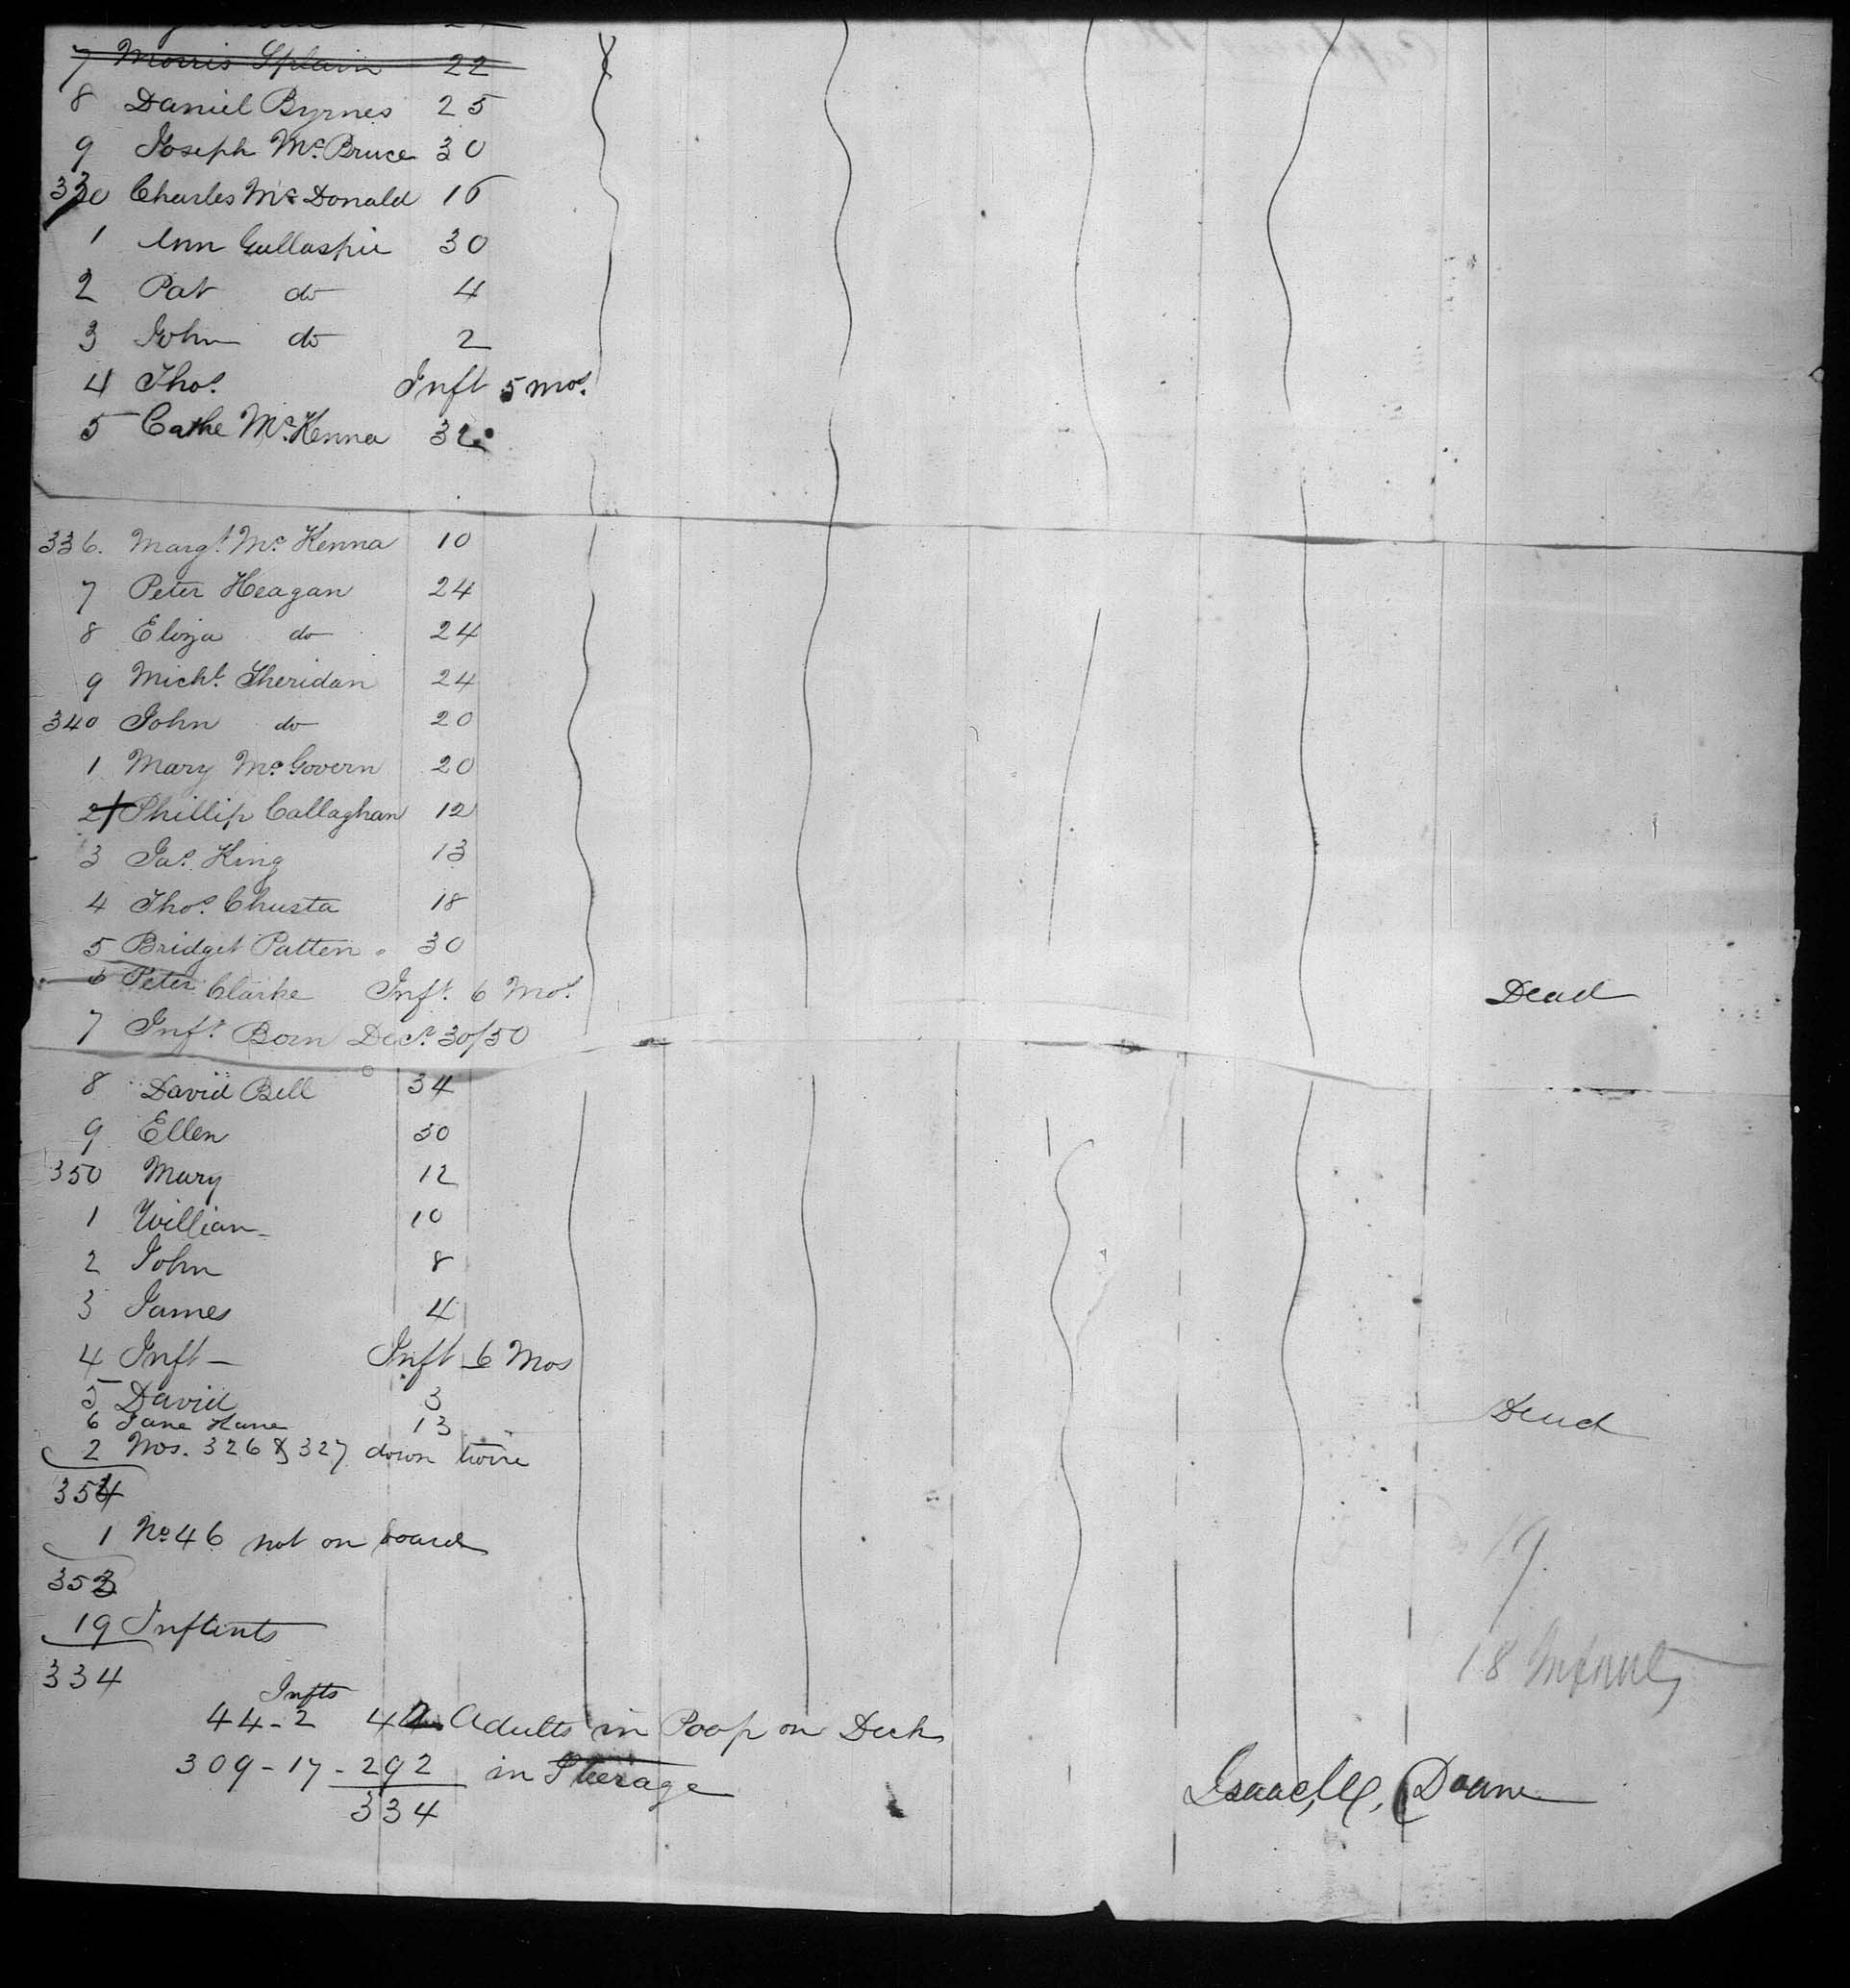 7 Morris Splain 22
8 Daniel Byrnes 25
9 Joseph Mc. Bruce 30
330 Charles Mc Donald 16
1 Ann Gullaspie 30
2 Pat do 4
3 John do 2
4 Thos. Inft 5 mos.
5 Cathe Mc. Kenna 32
336. Margt. Mc Kenna 10
7 Peter Heagan 24
8 Eliza do 24
9 Michl. Sheridan 24
340 John do 20
1 Mary Mc Govern 20
2 Phillip Callaghan 12
3 Jas. King 13
4 Thos. Chusta 18
5 Bridget Patten 30
6 Peter Clarke Inft. 6 Mos. Dead
7 Inft. Born Decr. 30/50
8 David Bell 34
9 Ellen 30
350 Mary 12
1 William 10
2 John 8
3 James 4
4 Inft — Inft 6 Mos
5 David 3 Dead
6 Jane Kane 13
2 Nos. 326 & 327 down twice
354
1 No 46 not on board
353
19 Inftints
19
334
18 Infants
Infts
44-2 42 Adults in Poop on Deck
309-17-292 in Steerage
334
Isaac M. Doane